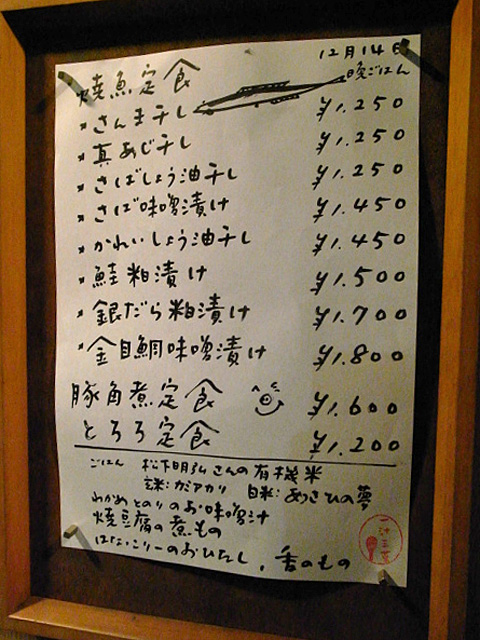 12月14日
晩ごはん
焼魚定食
*さんま干し ¥1.250
*真あじ干し ¥1.250
*さばしょう油干し ¥1.250
*さば味噌漬け ¥1.450
*かれいしょう油干し ¥1.450
*鮭粕漬け ¥1.500
*銀だら粕漬け ¥1.700
*金目鯛味噌漬け ¥1.800
豚角煮定食 ¥1.600
とろろ定食 ¥1.200
ごはん 松下明弘さんの有機米
玄米:カミアカリ 白米:あさひの夢
わかめとのりのお味噌汁
焼豆腐の煮もの
はなっこりーのおひたし、香のもの